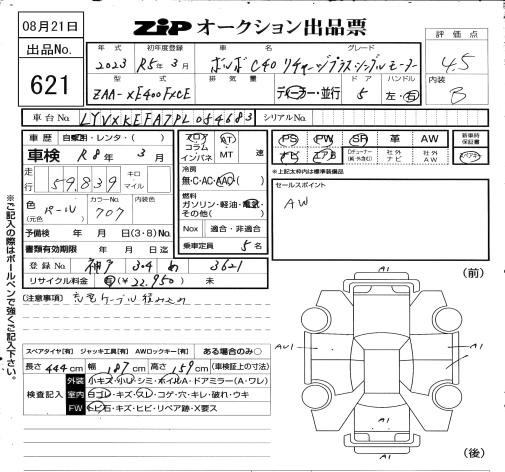 08月21日
出品No.
621
ZIP オークション出品票
年式 初年度登録 車名 グレード
2023 R5年3月 ボルボ C40 リチャージプラスシングルモーター
型式 排気量 ドア ハンドル
ZAA-XE400FXCE ディーラー・並行 5 左・右
評価点
4.5
内装
B
車台No. LYVXKEFA7PL054683 シリアルNo.
車歴 自家用・レンタ・( )
車検 R8年3月
走行 59,839 キロ マイル
色 (元色) パール カラーNo. 707 内装色
予備検 年 月 日(3・8)No.
書類有効期限 年 月 日迄
登録No. 神戸 304 め 3621
リサイクル料金 有(¥22,950) 未
フロア コラム インパネ AT MT 速
冷房
無・C・AC・AAC・( )
燃料
ガソリン・軽油・電気・その他( )
Nox 適合・非適合
乗車定員 5名
PS PW SR 革 AW
ナビ エアB Dチューナー(純・外含む) 社外ナビ 社外AW
新車時保証書
※上記太枠内は標準装備品
セールスポイント
AW
※ご記入の際はボールペンで強くご記入下さい。
〔注意事項〕 充電ケーブル積み込め
スペアタイヤ[有] ジャッキ工具[有] AWロックキー[有] ある場合のみ○
長さ 444cm 幅 187cm 高さ 159cm (車検証上の寸法)
検査記入
外装 小キズ・小U・シミ・ホイルA・ドアミラー(A・ワレ)
室内 ヨゴレ・キズ・スレ・コゲ・穴・キレ・破れ・ウキ
FW トビ石・キズ・ヒビ・リペア跡・X要ス
(前)
A1
AU1
A1
A1
A1
(後)